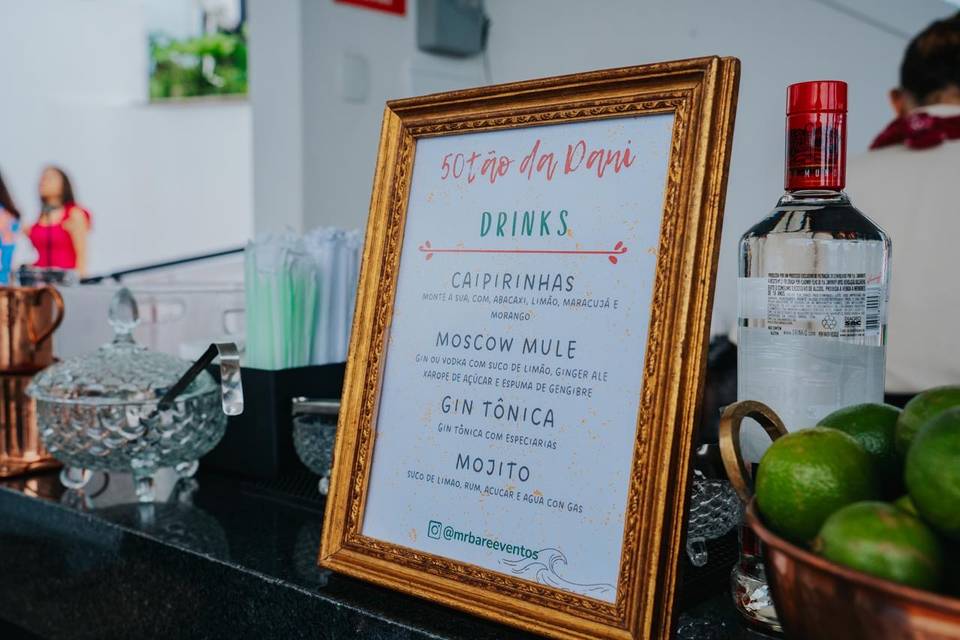 50tão da Dani
DRINKS
CAIPIRINHAS
MONTE A SUA, COM, ABACAXI, LIMÃO, MARACUJÁ E
MORANGO
MOSCOW MULE
GIN OU VODKA COM SUCO DE LIMÃO, GINGER ALE
XAROPE DE AÇÚCAR E ESPUMA DE GENGIBRE
GIN TÔNICA
GIN TÔNICA COM ESPECIARIAS
MOJITO
SUCO DE LIMAO, RUM, ACUCAR E AGUA COM GAS
@mrbareeventos